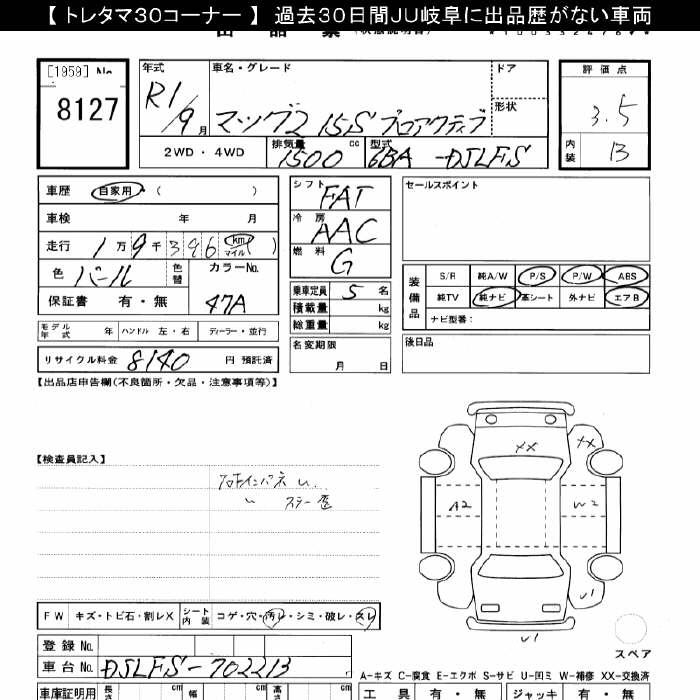 【 トレタマ30コーナー 】 過去30日間JU岐阜に出品歴がない車両
[1959] No.
8127
年式
R1/9月
車名・グレード
マツダ2 15S プロアクティブ
ドア
形状
2WD・4WD
排気量
1500
cc
型式
6BA-DJLFS
評価点
3.5
内装
B
車歴
自家用
(　　)
車検
年　月
走行
1万9千396
km
マイル
)
色
パール
色替
カラーNo.
47A
保証書
有・無
モデル年式
年
ハンドル
左・右
ディーラー・並行
リサイクル料金
8140
円 預託済
シフト
FAT
冷房
AAC
燃料
G
乗車定員
5
名
積載量
kg
総重量
kg
名変期限
月　日
セールスポイント
装備品
S/R
純A/W
P/S
P/W
ABS
純TV
純ナビ
革シート
外ナビ
エアB
ナビ型番:
後日品
【出品店申告欄(不良箇所・欠品・注意事項等)】
【検査員記入】
XX
XX
A2
W2
U1
U1
スペア
FW
キズ・トビ石・割レX
シート内装
コゲ・穴・汚レ・シミ・破レ・スレ
登録 No.
車台 No.
DJLFS-702213
車庫証明用
長さ
cm
幅
cm
高さ
cm
A-キズ C-腐食 E-エクボ S-サビ U-凹ミ W-補修 XX-交換済
工具
有・無
ジャッキ
有・無